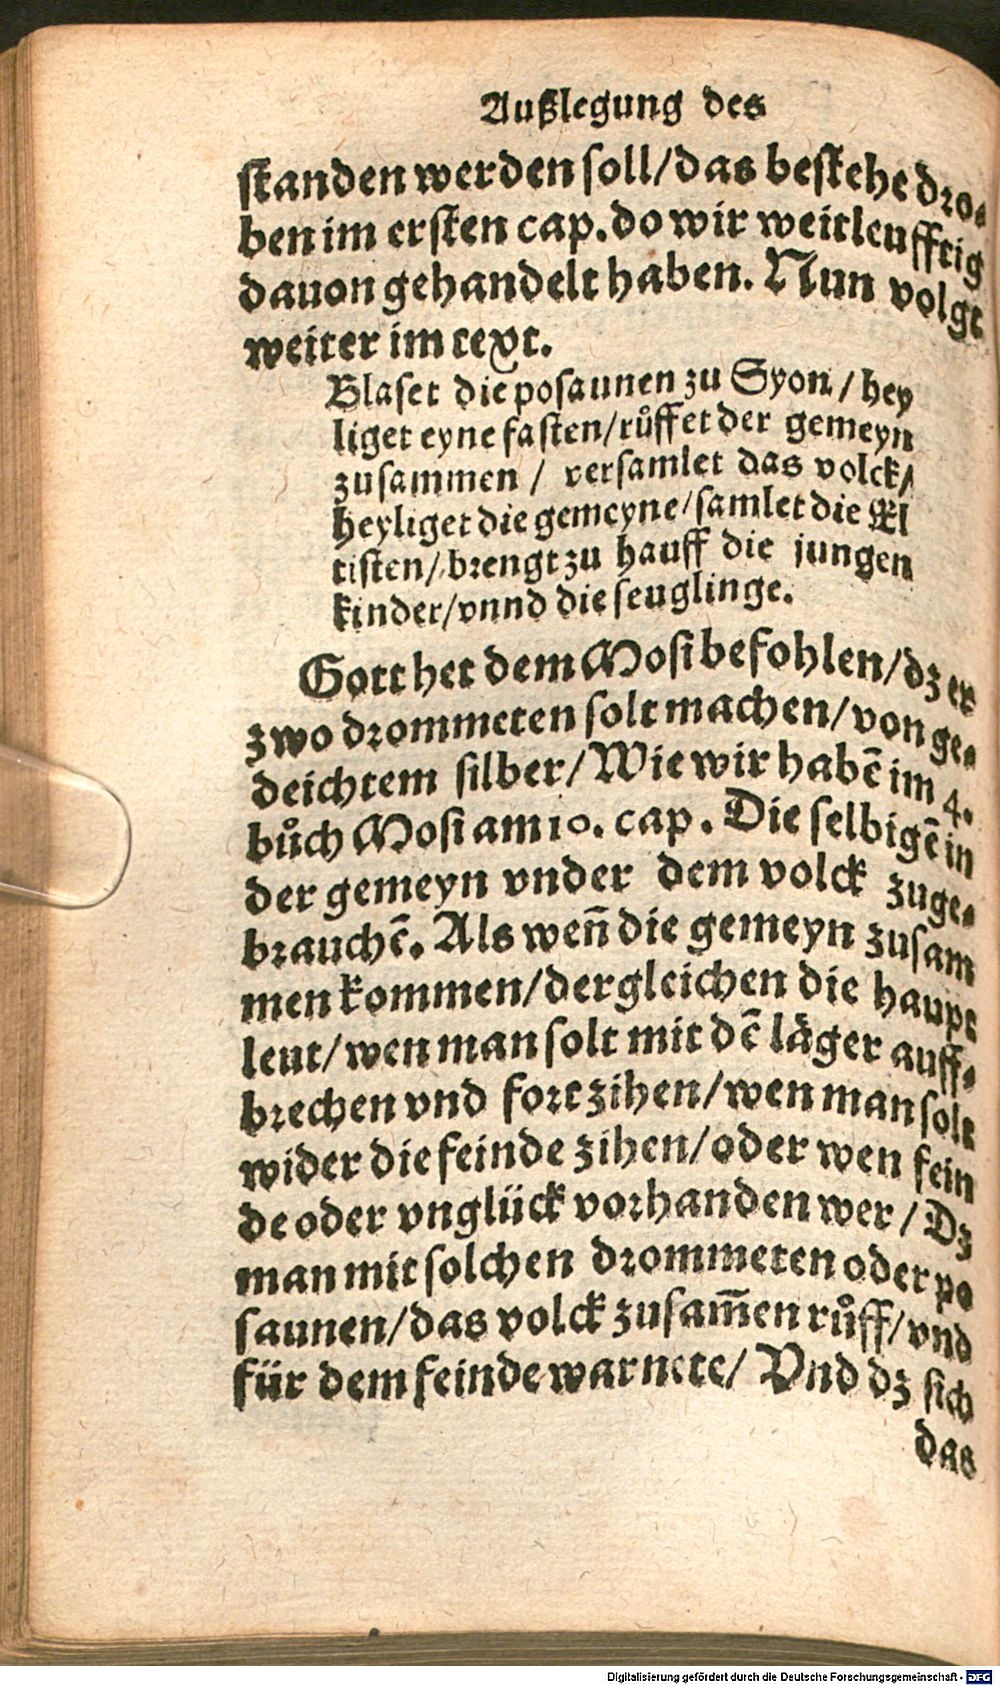 Außlegung des
standen werden soll/das bestehe dro⸗
ben im ersten cap. do wir weitleufftig
dauon gehandelt haben. Nun volgt
weiter im text.
Blaset die posaunen zu Syon/hey
liget eyne fasten/růffet der gemeyn
zusammen/ versamlet das volck/
heyliget die gemeyne/samlet die El
tisten/brengt zu hauff die jungen
kinder/vnnd die seuglinge.
Gott het dem Mosi befohlen/dz er
zwo drommeten solt machen/von ge⸗
deichtem silber/Wie wir habẽ im 4.
bůch Mosi am 10. cap. Die selbigẽ in
der gemeyn vnder dem volck zuge⸗
brauchẽ. Als weñ die gemeyn zusam
men kommen/dergleichen die haupt
leut/wen man solt mit dẽ läger auff⸗
brechen vnd fort zihen/wen man solt
wider die feinde zihen/oder wen fein
de oder vnglück vorhanden wer/Dz
man mit solchen drommeten oder po
saunen/das volck zusam̃en růff/vnd
für dem feinde warnete/ Vnd dz sich
das
Digitalisierung gefördert durch die Deutsche Forschungsgemeinschaft - DFG